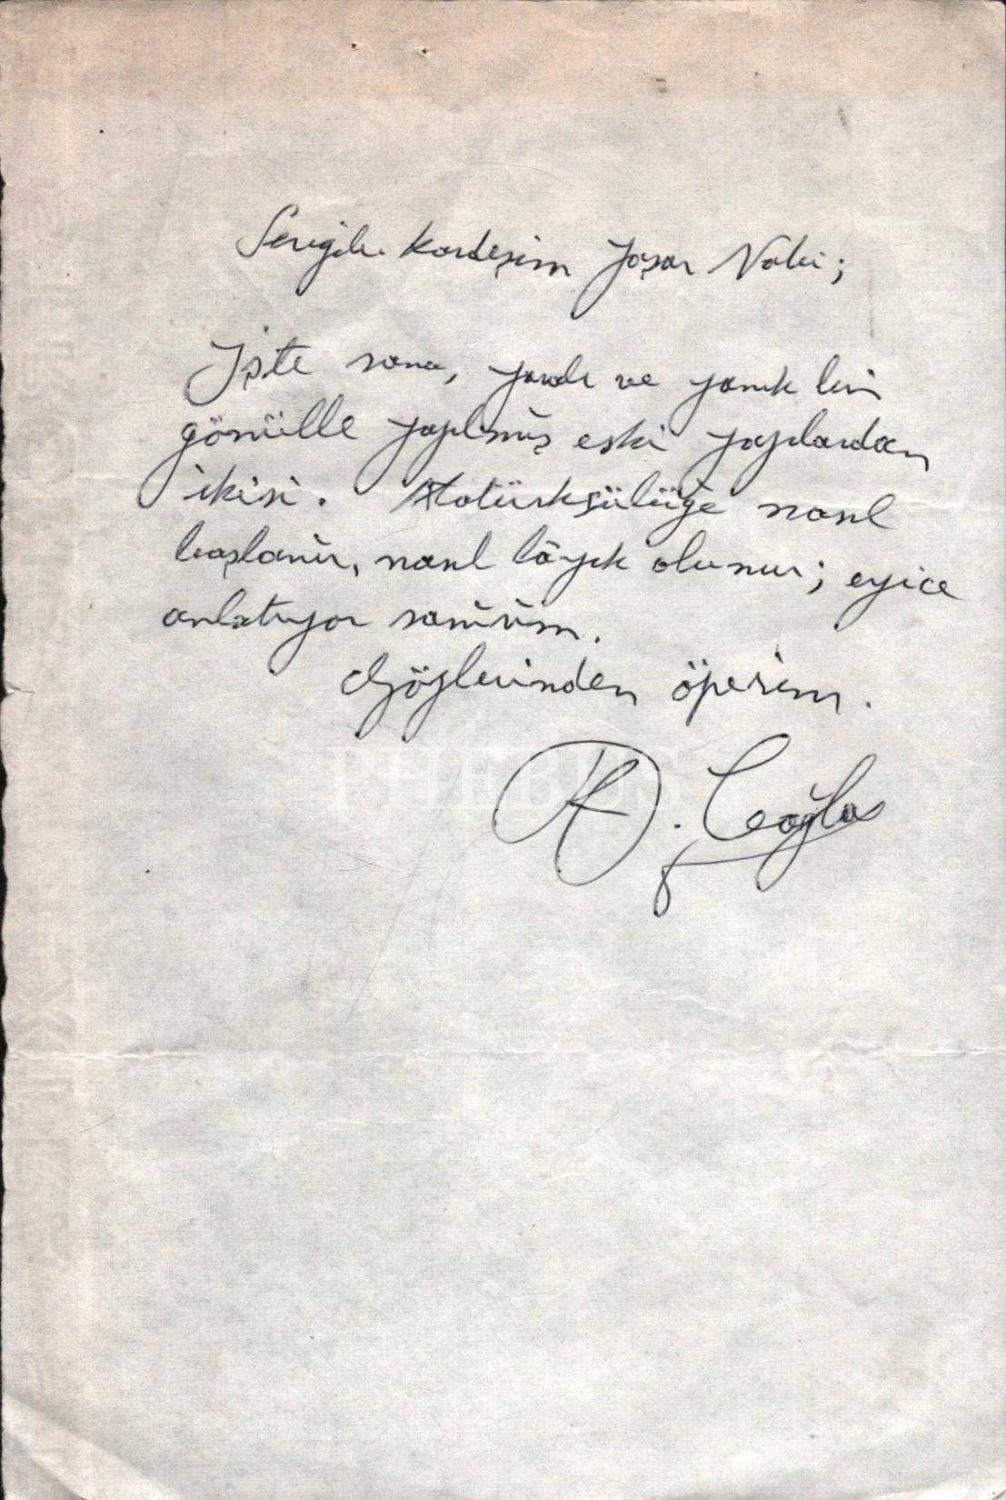 Sevgili kardeşim Yaşar Nabi;
İşte sana, yaralı ve yanık bir
gönülle yazılmış eski yazılardan
ikisi. Atatürkçülüğe nasıl
başlanır, nasıl lâyık olunur; eyice
anlatıyor sanırım.
Gözlerinden öperim.
B. K. Çağlar
PHEBUS